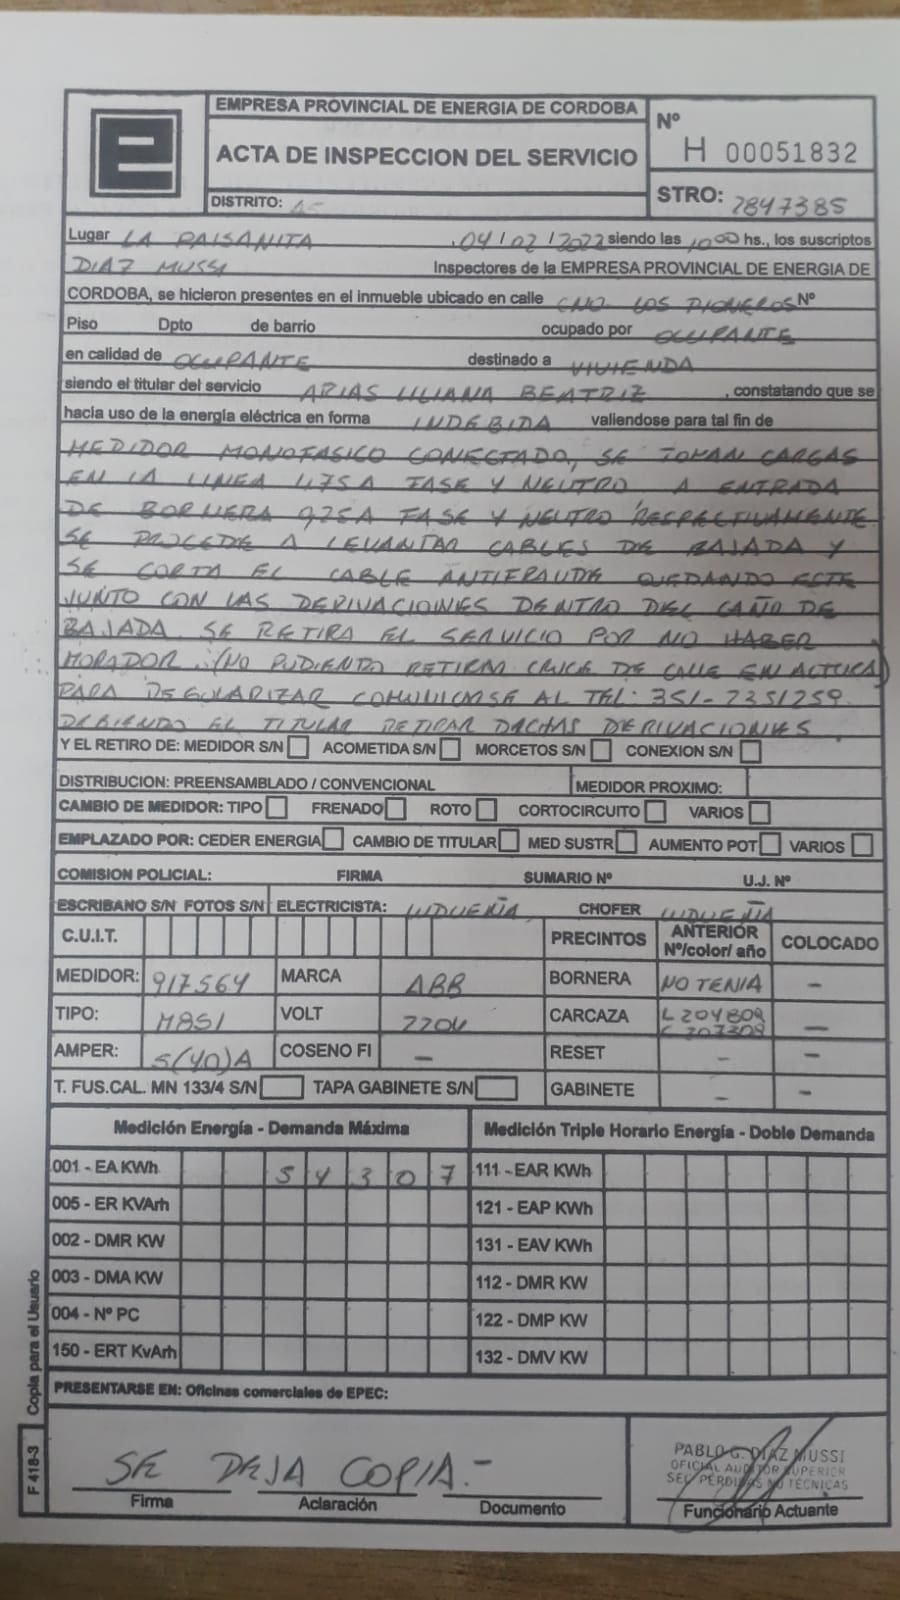 EMPRESA PROVINCIAL DE ENERGIA DE CORDOBA
ACTA DE INSPECCION DEL SERVICIO
Nº
H 00051832
DISTRITO:
STRO: 2847385
Lugar LA PAISANITA 04/02/2022 siendo las 10 00 hs., los suscriptos
DIAZ MUSSI Inspectores de la EMPRESA PROVINCIAL DE ENERGIA DE
CORDOBA, se hicieron presentes en el inmueble ubicado en calle CNO. LOS PIONEROS Nº
Piso Dpto de barrio ocupado por OCUPANTE
en calidad de OCUPANTE destinado a VIVIENDA
siendo el titular del servicio ARIAS LILIANA BEATRIZ , constatando que se
hacia uso de la energía eléctrica en forma INDEBIDA valiendose para tal fin de
MEDIDOR MONOFASICO CONECTADO, SE TOMAN CARGAS
EN LA LINEA 4,75A FASE Y NEUTRO A ENTRADA
DE BORNERA 0,25A FASE Y NEUTRO RESPECTIVAMENTE
SE PROCEDE A LEVANTAR CABLES DE BAJADA Y
SE CORTA EL CABLE ANTIFRAUDE QUEDANDO ESTE
JUNTO CON LAS DERIVACIONES DENTRO DEL CAÑO DE
BAJADA. SE RETIRA EL SERVICIO POR NO HABER
MORADOR. (NO PUDIENDO RETIRAR CRUCE DE CALLE EN ALTURA)
PARA REGULARIZAR COMUNICARSE AL TEL: 351-
DEBIENDO EL TITULAR RETIRAR DICHAS DERIVACIONES
Y EL RETIRO DE: MEDIDOR S/N ACOMETIDA S/N MORCETOS S/N CONEXION S/N
DISTRIBUCION: PREENSAMBLADO / CONVENCIONAL MEDIDOR PROXIMO:
CAMBIO DE MEDIDOR: TIPO FRENADO ROTO CORTOCIRCUITO VARIOS
EMPLAZADO POR: CEDER ENERGIA CAMBIO DE TITULAR MED SUSTR AUMENTO POT VARIOS
COMISION POLICIAL: FIRMA SUMARIO Nº U.J. Nº
ESCRIBANO S/N FOTOS S/N ELECTRICISTA: LUDUEÑA CHOFER LUDUEÑA
C.U.I.T. PRECINTOS ANTERIOR Nº/color/ año COLOCADO
MEDIDOR: 917564 MARCA ABB BORNERA NO TENIA -
TIPO: M8S1 VOLT 220V CARCAZA L 204809 -
AMPER: 5(40)A COSENO FI - RESET - -
T. FUS.CAL. MN 133/4 S/N TAPA GABINETE S/N GABINETE - -
Medición Energía - Demanda Máxima Medición Triple Horario Energía - Doble Demanda
001 - EA KWh 5 4 3 0 7 111 - EAR KWh
005 - ER KVArh 121 - EAP KWh
002 - DMR KW 131 - EAV KWh
003 - DMA KW 112 - DMR KW
004 - Nº PC 122 - DMP KW
150 - ERT KvArh 132 - DMV KW
PRESENTARSE EN: Oficinas comerciales de EPEC:
SE DEJA COPIA.-
Firma Aclaración Documento
PABLO G. DIAZ MUSSI
OFICIAL AUDITOR SUPERIOR
SEC PERDIDAS NO TECNICAS
Funcionario Actuante
F 418-3 Copia para el Usuario